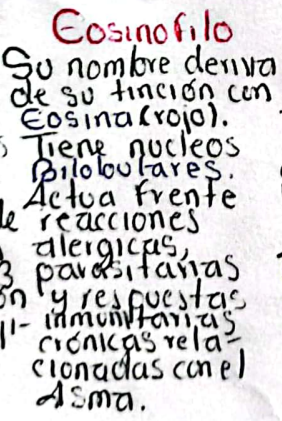 Eosinofilo
Su nombre deriva
de su tinción con
Eosina (rojo).
s Tiene nucleos
Bilobulares.
Actua frente
de reacciones
alergicas,
3 parasitarias
ón y respuestas
1- inmunitarias
crónicas rela-
cionadas con el
Asma.